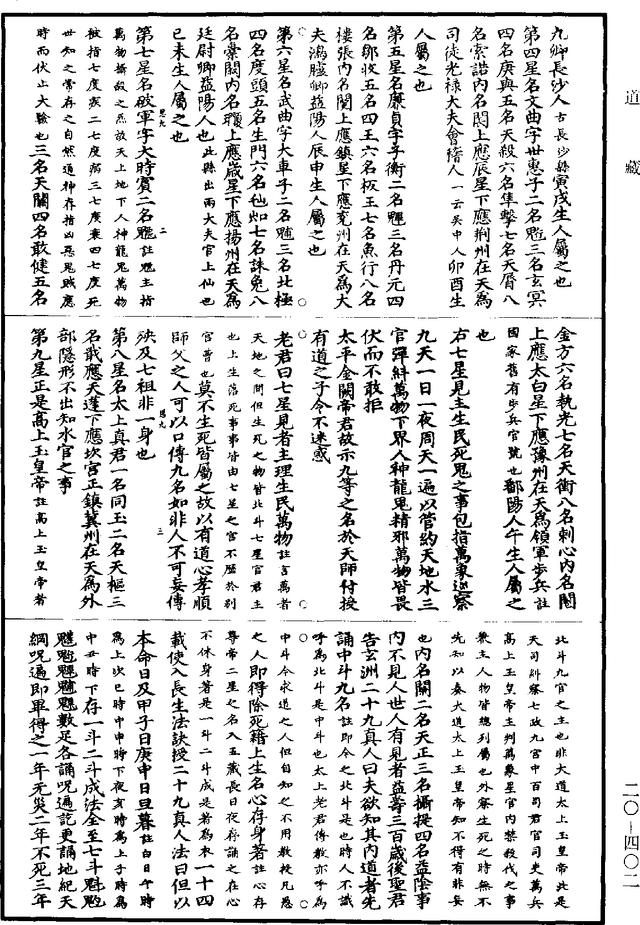 道藏
九卿長沙人古長沙縣寅戌生人屬之也
第四星名文曲字世惠子二名三名玄冥
四名庚與五名天殺六名隼擊七名天厝八
名索諾內名上應辰星下應荊州在天為
司徒光祿大夫會稽人一云吳中人卯酉生
人屬之也
第五星名廉貞字子衡二名三名丹元四
名鄒收五名四王六名板王七名魚行八名
樓張內名上應鎮星下應兗州在天為大
夫鴻臚卿益陽人辰申生人屬之也
第六星名武曲字大車子二名三名北極
四名度頭五名生門六名七名誅兔八
名內名上應歲星下應揚州在天為
廷尉卿益陽人也此縣出兩大夫官上仙也
巳未生人屬之也
第七星名破軍字大時賓二名註魁主指
萬物攝殺之炁故天上地下人神龍鬼萬物
被指七度病二七度病三七度衰四七度死
世知之常存之自然通神存指凶惡鬼賊應
時而伏止大驗也三名天關四名敢健五名
金方六名執光七名天衛八名刺心內名
上應太白星下應豫州在天為領軍步兵註
國家舊有步兵官號也鄱陽人午生人屬之
也
右七星見主生民死鬼之事包指萬象巡察
九天一日一夜周天一遍以管約天地水三
官彈糾萬物下界人神龍鬼精邪萬物皆畏
伏而不敢拒
太平金闕帝君故示九等之名於天師付授
有道之子令不迷惑
老君曰七星見者主理生民萬物註言萬者
天地之間但生死之物皆北斗七星官君主
也上生落死事事皆由七星之宮不歷於別
宮曹也莫不生死皆屬之故以有道心孝順
師父之人可以口傳九名如非人不可妄傳
殃及七祖非一身也
第八星名太上真君一名同玉二名天樞三
名戢應天蓬下應坎宮正鎮冀州在天為外
部隱形不出知水官之事
第九星正是高上玉皇帝註高上玉皇帝者
北斗九宮之主也非大道太上玉皇帝此是
天司糾察七政九宮中百司君官司吏萬兵
高上玉皇帝主判萬象星官內禁殺伐之事
眾主人物皆總列屬也外察生死之時無不
先知以奏大道太上玉皇帝知不得有非妄
也內名關二名天正三名攝提四名益陰事
內不見人世人有見者益壽三百歲後聖君
告玄洲二十九真人曰夫欲知其內道者先
誦中斗九名註即今之北斗是也時人不識
呼為北斗是中斗也太上老君傳教亦呼為
中斗今求道之人但自知之不用教授凡愚
之人即得除死籍上生名心存身著註心存
尊帝二星之名入五藏長日夜存誦之在心
不休身著是一斗二斗成是著為衣一十四
載使入長生法訣授二十九真人法曰但以
本命日及甲子日庚申日旦暮註白日午時
為上次巳時中申時下夜亥時為上子時為
中丑時下存一斗二斗成法全至七斗
數足各誦呪遍訖更誦地紀天
綱呪遍即畢得之一年无災二年不死三年
二〇－四〇二